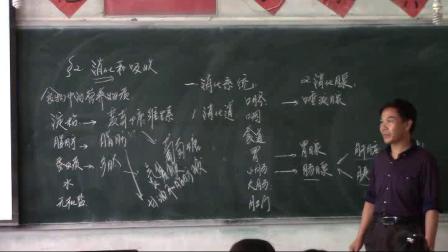 §2 消化和吸收
食物中的营养物质
淀粉 →
脂肪 → 脂肪
蛋白质 →
水
无机盐
葡萄糖
氨基酸
甘油和脂肪酸
一 消化系统
1 消化道
口腔
咽
食道
胃
小肠
大肠
肛门
2 消化腺
→ 唾液腺
→ 胃腺
→ 肠腺